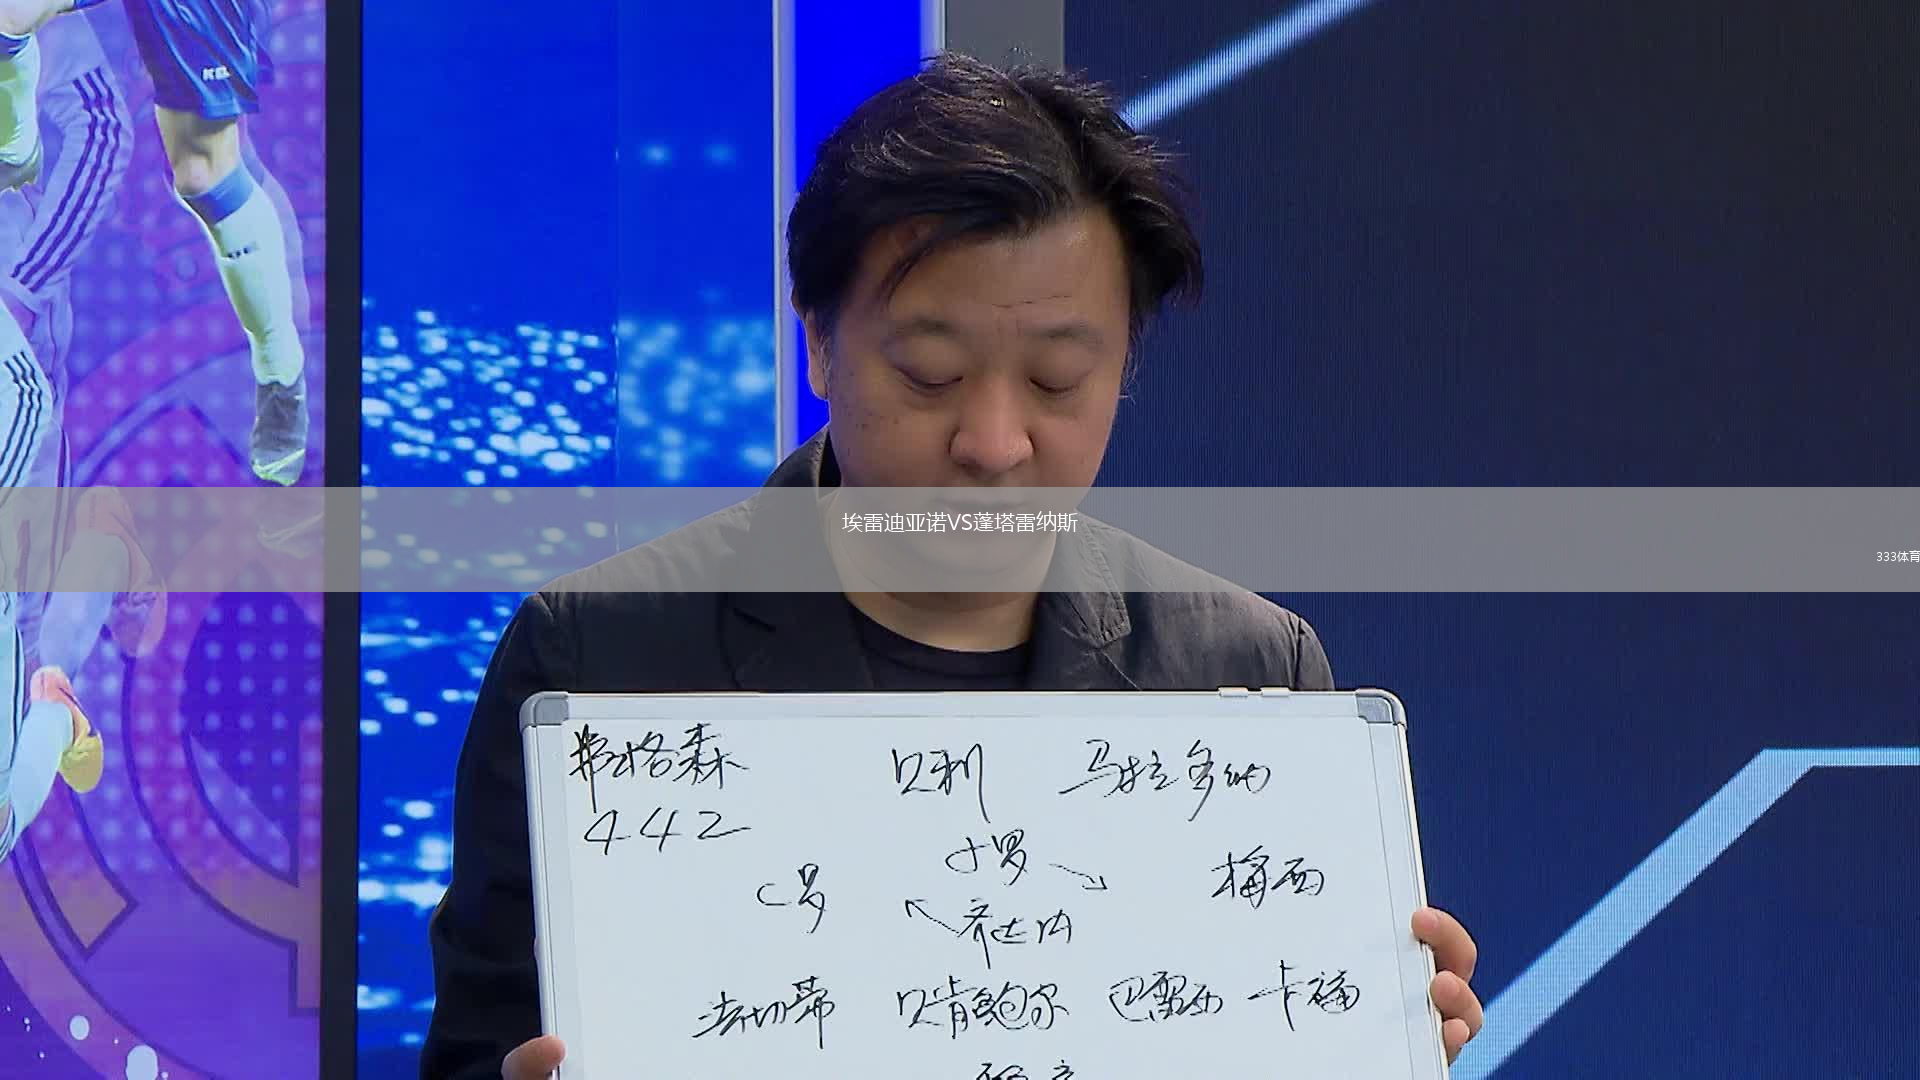 KEL
埃雷迪亚诺VS蓬塔雷纳斯
333体育
弗格森 贝利 马拉多纳
442
小罗
C罗 梅西
齐达内
法切蒂 贝肯鲍尔 巴雷西 卡福